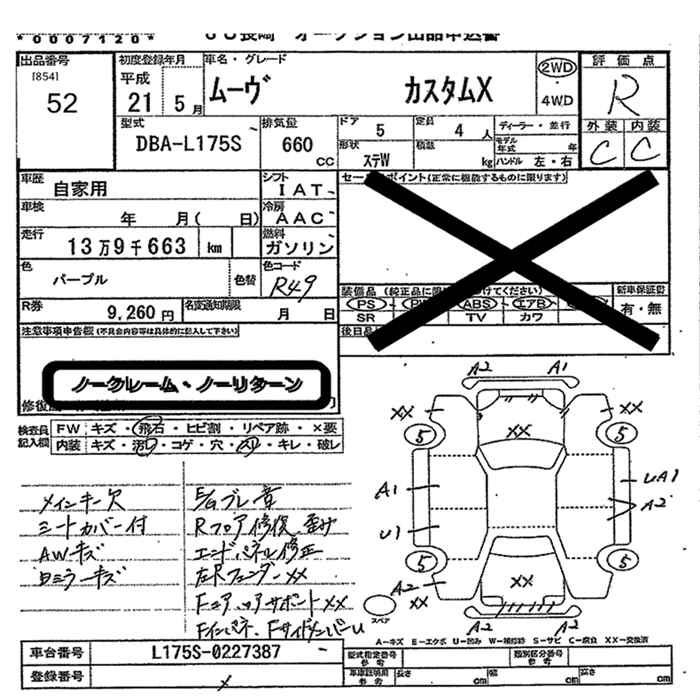 *0007120* JU長崎 オークション出品申込書
出品番号 初度登録年月 車名・グレード 評価点
[854] 平成 2WD
52 21年 5月 ムーヴ カスタムX ・ R
4WD
型式 排気量 ドア 定員 ディーラー・並行 外装 内装
DBA-L175S 660 cc 5 4人 モデル年式 年 C C
形状 積載
ステW kg ハンドル 左・右
車歴 自家用 シフト IAT セールスポイント(正常に機能するものに限ります)
車検 年 月( 日) 冷房 AAC
走行 13万9千663 km 燃料 ガソリン
色 パープル 色替 色コード R49
装備品(純正品に限り けてください) 新車保証書
PS ABS エアB 有・無
R券 9,260円 名変通知期限 月 日 SR TV カワ
注意事項申告欄(不具合内容等は具体的に記入して下さい) 後日品
ノークレーム・ノーリターン
検査員記入欄 FW キズ・飛石・ヒビ割・リペア跡・×要
内装 キズ・汚レ・コゲ・穴・スレ・キレ・破レ
A2 A1
XX XX XX
5 5
A1 UA1
A2
U1
5 5
A2 XX XX
A2 A2
スペア
メインキー欠 E/Gブレ音
シートカバー付 Rフロア修復 歪み
AWキズ エンドパネル修正
白ミラーキズ 左Rフェンダー XX
XX
Fインパネ、FサイドメンバーU
A-キズ E-エクボ U-凹み W-補修跡 S-サビ C-腐食 XX-交換済
車台番号 L175S-0227387 型式指定番号 参考 類別区分番号 参考
登録番号 車庫証明用 参考 長さ cm 幅 cm 高さ cm